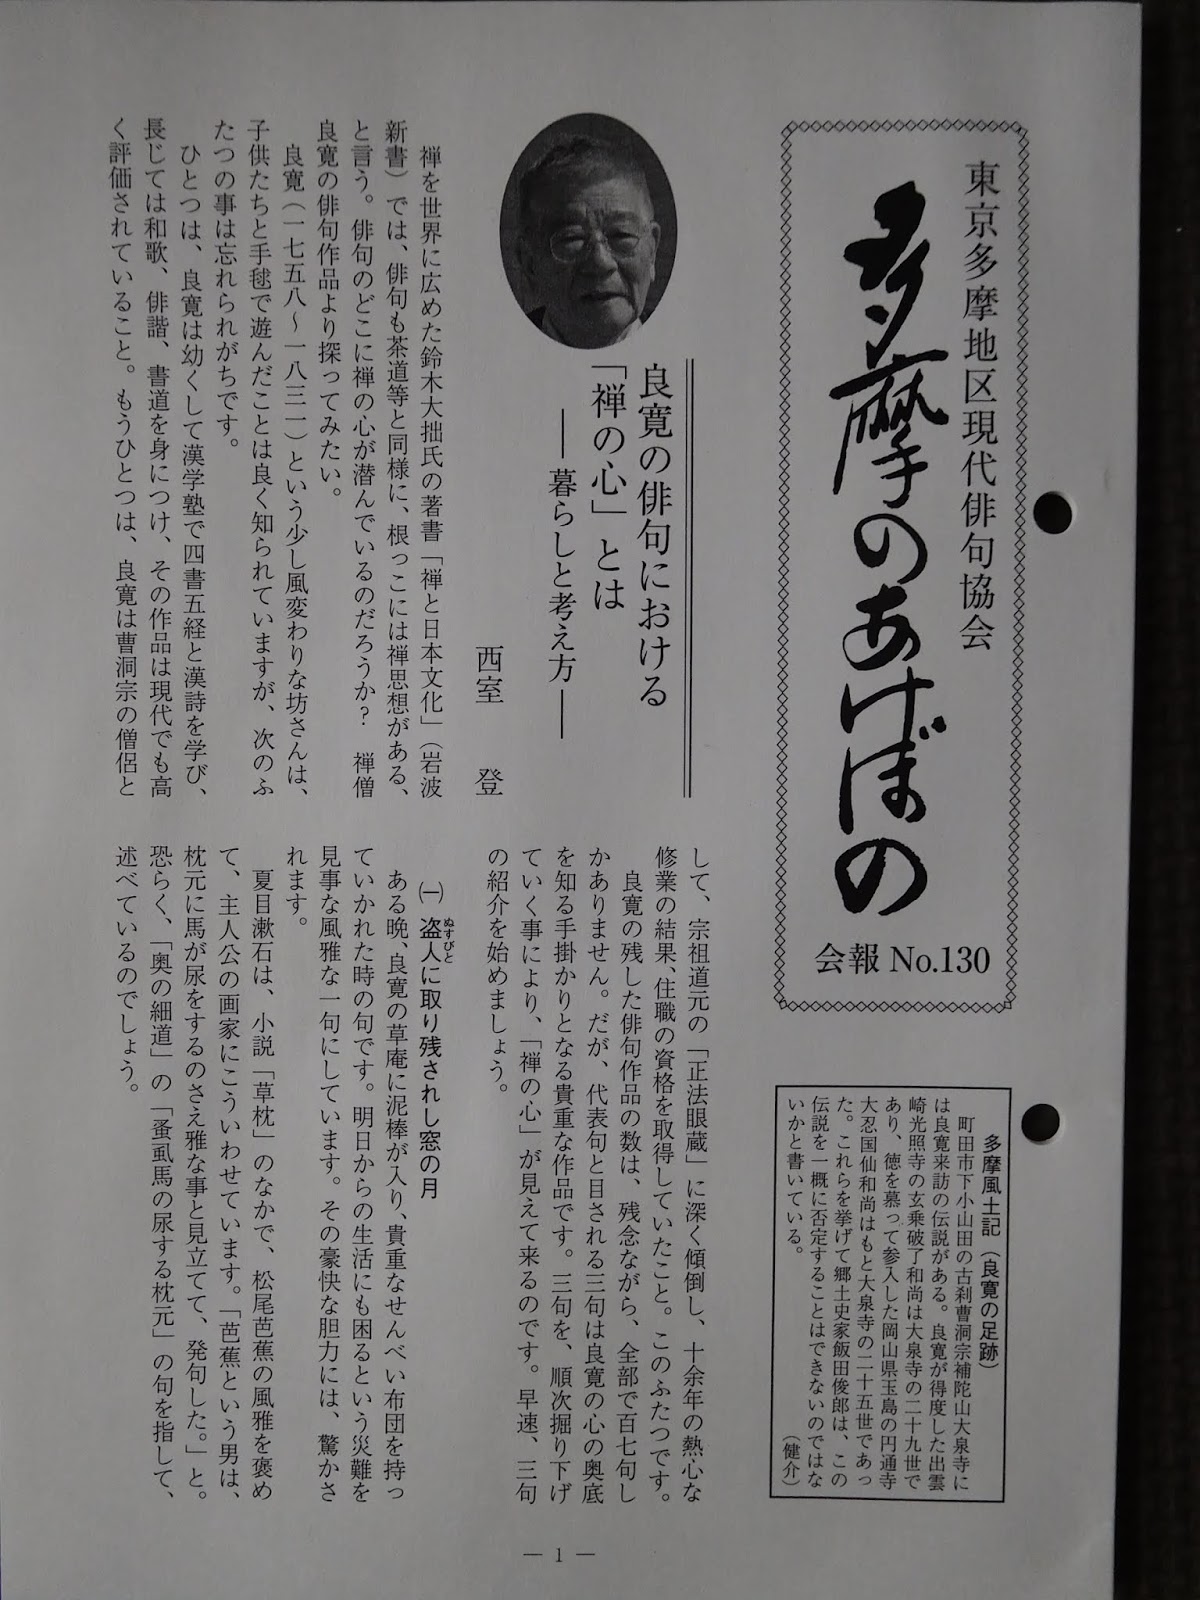 東京多摩地区現代俳句協会
多摩のあけぼの
会報 No.130
多摩風土記（良寛の足跡）
町田市下小山田の古刹曹洞宗補陀山大泉寺に
は良寛来訪の伝説がある。良寛が得度した出雲
崎光照寺の玄乗破了和尚は大泉寺の二十九世で
あり、徳を慕って参入した岡山県玉島の円通寺
大忍国仙和尚はもと大泉寺の二十五世であっ
た。これらを挙げて郷土史家飯田俊郎は、この
伝説を一概に否定することはできないのではな
いかと書いている。
（健介）
良寛の俳句における
「禅の心」とは
―― 暮らしと考え方 ――
西室 登
禅を世界に広めた鈴木大拙氏の著書「禅と日本文化」（岩波
新書）では、俳句も茶道等と同様に、根っこには禅思想がある、
と言う。俳句のどこに禅の心が潜んでいるのだろうか？ 禅僧
良寛の俳句作品より探ってみたい。
良寛（一七五八～一八三一）という少し風変わりな坊さんは、
子供たちと手毬で遊んだことは良く知られていますが、次のふ
たつの事は忘れられがちです。
ひとつは、良寛は幼くして漢学塾で四書五経と漢詩を学び、
長じては和歌、俳諧、書道を身につけ、その作品は現代でも高
く評価されていること。もうひとつは、良寛は曹洞宗の僧侶と
して、宗祖道元の「正法眼蔵」に深く傾倒し、十余年の熱心な
修業の結果、住職の資格を取得していたこと。このふたつです。
良寛の残した俳句作品の数は、残念ながら、全部で百七句し
かありません。だが、代表句と目される三句は良寛の心の奥底
を知る手掛かりとなる貴重な作品です。三句を、順次掘り下げ
ていく事により、「禅の心」が見えて来るのです。早速、三句
の紹介を始めましょう。
㈠ 盗人に取り残されし窓の月
ぬすびと
ある晩、良寛の草庵に泥棒が入り、貴重なせんべい布団を持っ
ていかれた時の句です。明日からの生活にも困るという災難を
見事な風雅な一句にしています。その豪快な胆力には、驚かさ
れます。
夏目漱石は、小説「草枕」のなかで、松尾芭蕉の風雅を褒め
て、主人公の画家にこういわせています。「芭蕉という男は、
枕元に馬が尿をするのさえ雅な事と見立てて、発句した。」と。
恐らく、「奥の細道」の「蚤虱馬の尿する枕元」の句を指して、
述べているのでしょう。
― 1 ―